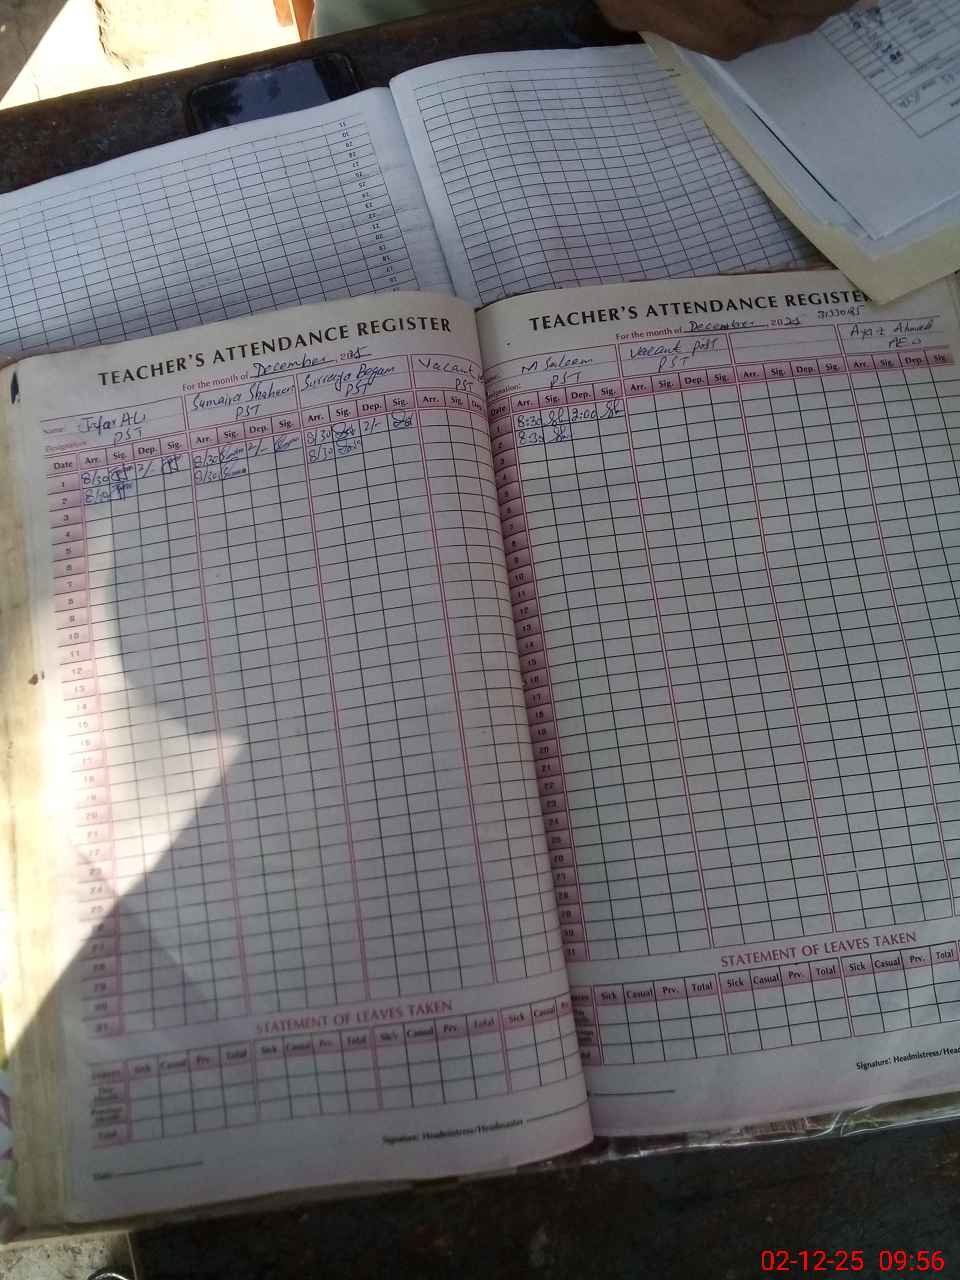 TEACHER'S ATTENDANCE REGISTER
For the month of December, 2025
Name: Jafar Ali Sumaira Shaheen Surreya Begam Vacant
Designation: PST PST PST PST
Date Arr. Sig. Dep. Sig. Arr. Sig. Dep. Sig. Arr. Sig. Dep. Sig. Arr. Sig. Dep.
1 8/30 2/- 8/30 2/- 8/30 2/-
2 8/30 8/30 8/30
3
4
5
6
7
8
9
10
11
12
13
14
15
16
17
18
19
20
21
22
23
24
25
26
27
28
29
30
31
STATEMENT OF LEAVES TAKEN
Sick Casual Prv. Total Sick Casual Prv. Total Sick Casual Prv. Total Sick Casual
Total
Signature: Headmistress/Headmaster
Date
TEACHER'S ATTENDANCE REGISTER
For the month of December, 2025 31330185
M Saleem Vacant post Ahmed
Designation: PST PST PEO
Date Arr. Sig. Dep. Sig. Arr. Sig. Dep. Sig. Arr. Sig. Dep. Sig. Arr. Sig. Dep. Sig.
1 8:30 2:00
2 8:30
3
4
5
6
7
8
9
10
11
12
13
14
15
16
17
18
19
20
21
22
23
24
25
26
27
28
29
30
31
STATEMENT OF LEAVES TAKEN
Sick Casual Prv. Total Sick Casual Prv. Total Sick Casual Prv. Total
Signature: Headmistress/Head
02-12-25 09:56